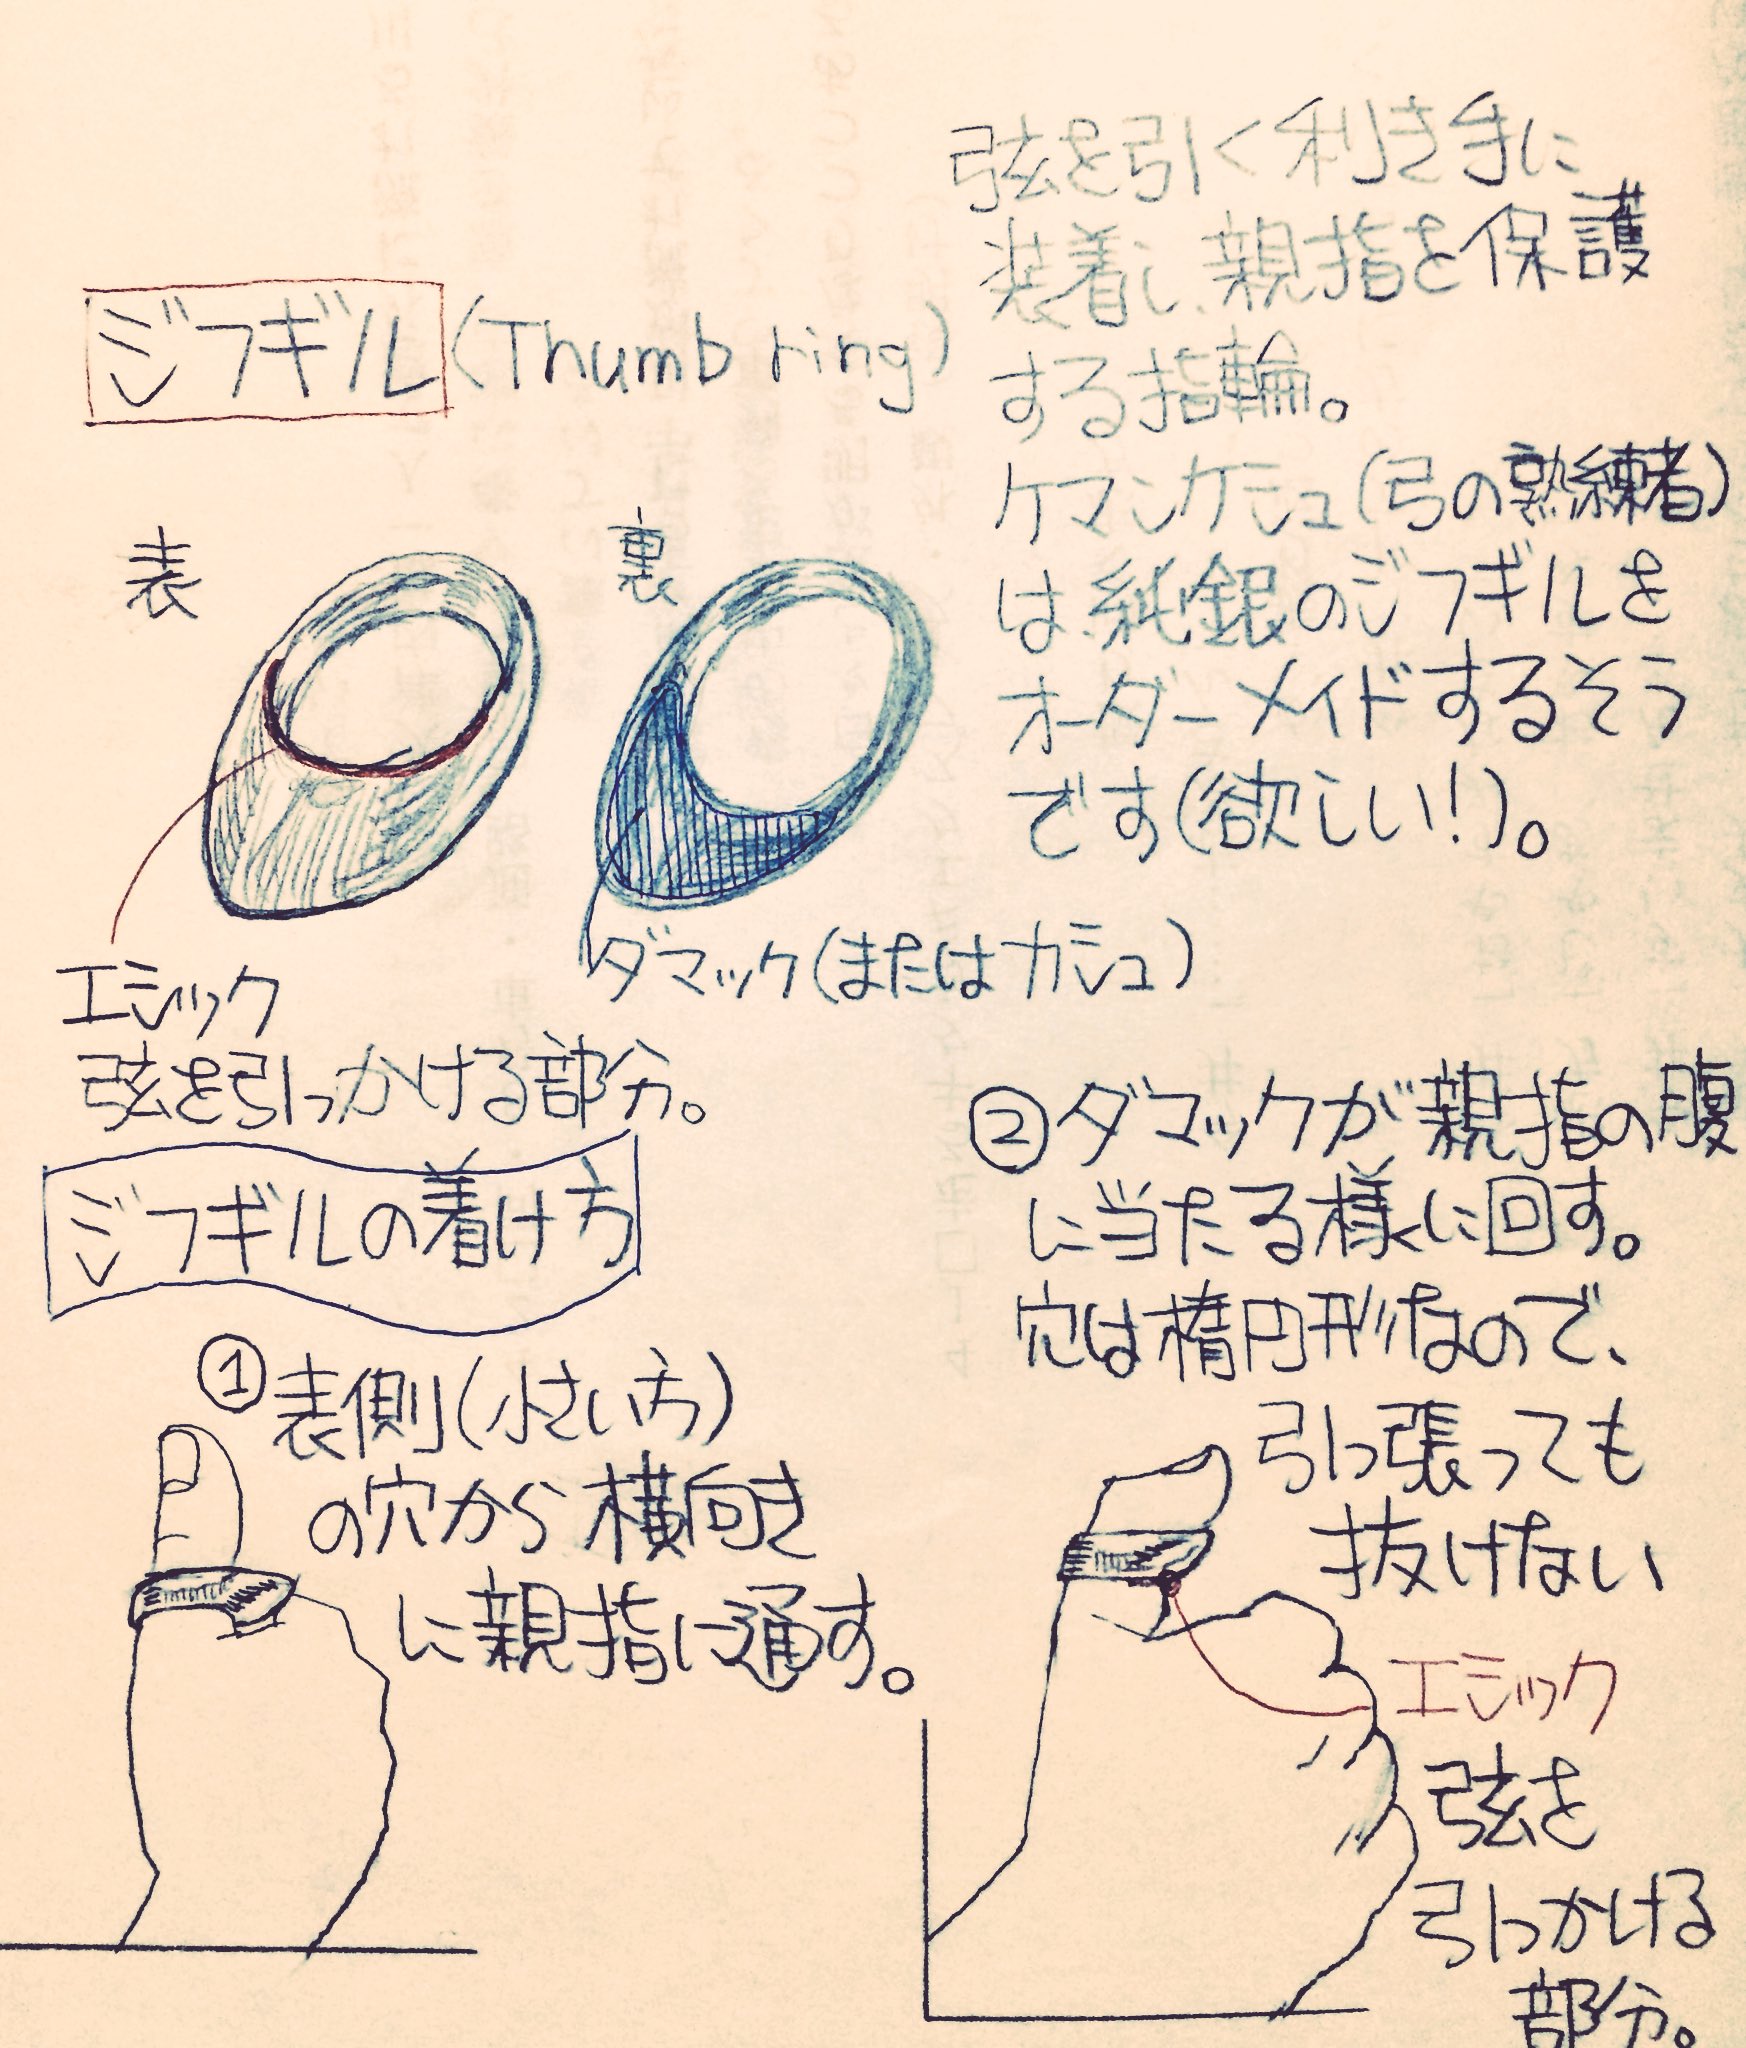 ジフギル(Thumb ring)
弦を引く利き手に
装着し、親指を保護
する指輪。
ケマンケシュ(弓の熟練者)
は、純銀のジフギルを
オーダーメイドするそう
です(欲しい!)。
表
裏
エシック
弦を引っかける部分。
ダマック(またはカシュ)
ジフギルの着け方
①表側(小さい方)
の穴から横向き
に親指に通す。
②ダマックが親指の腹
に当たる様に回す。
穴は楕円形なので、
引っ張っても
抜けない
エシック
弦を
引っかける
部分。